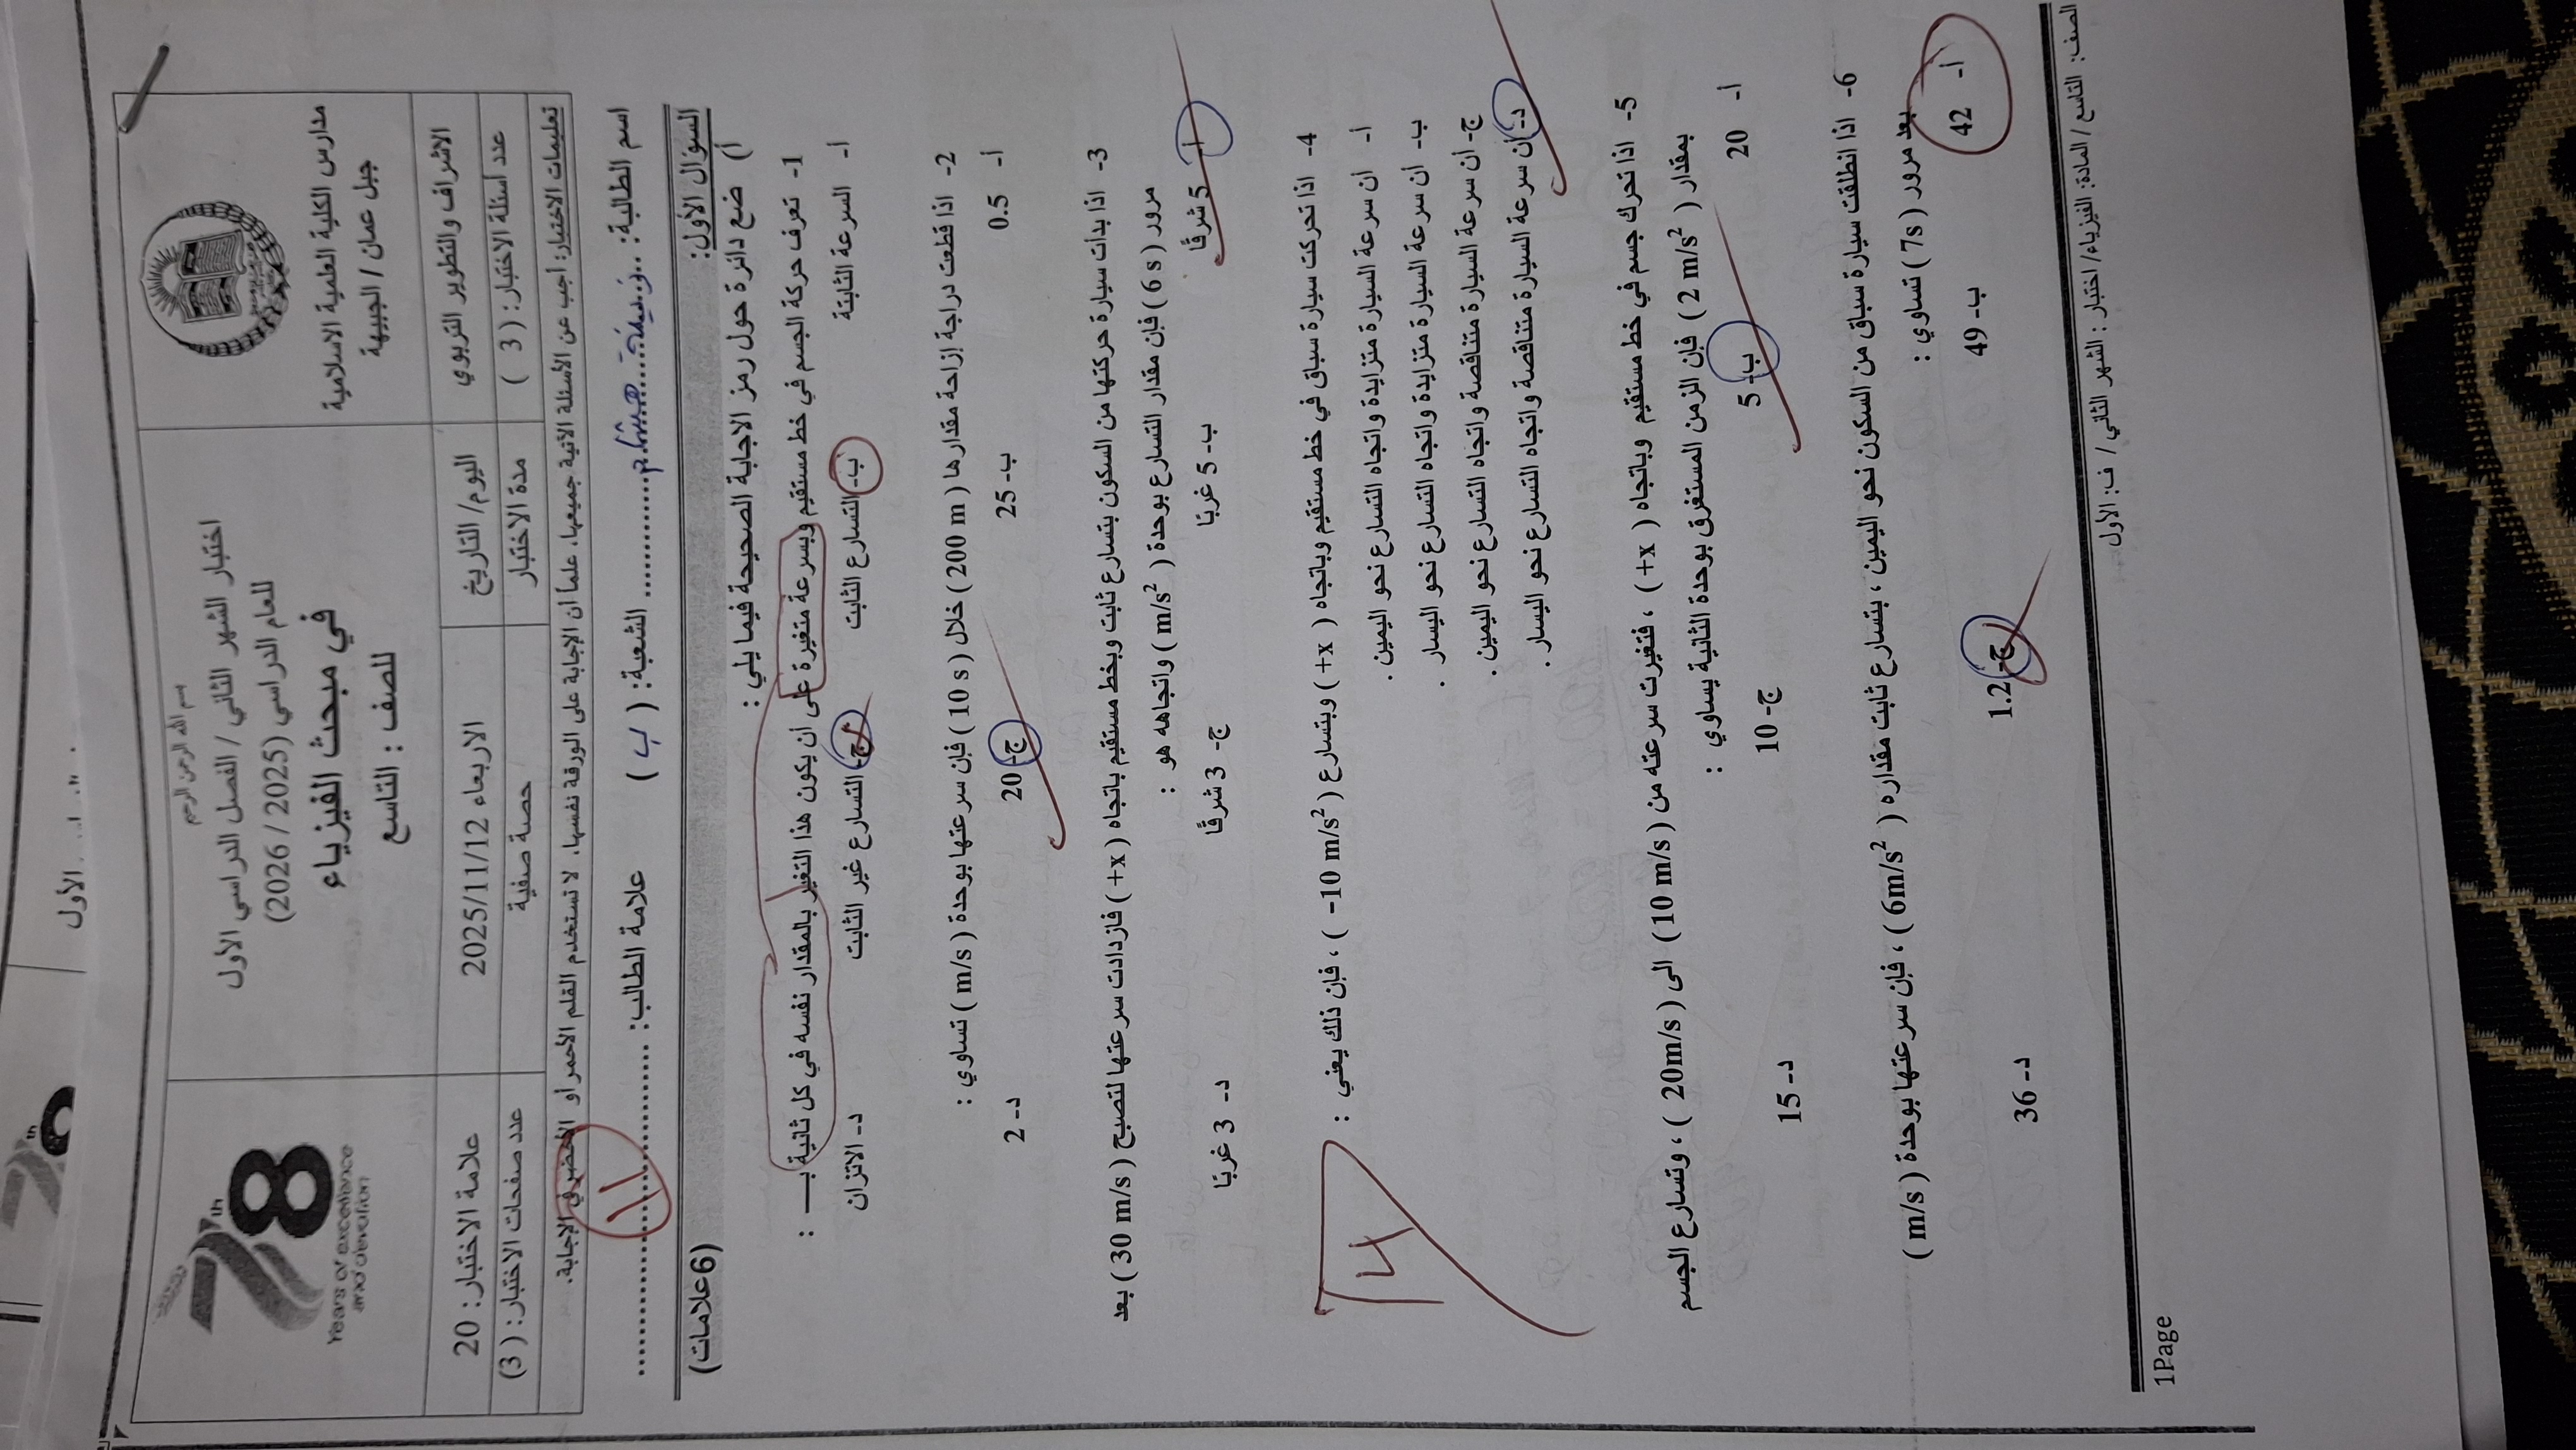 بسم الله الرحمن الرحيم
مدارس الكلية العلمية الاسلامية
جبل عمان / الجبيهة
اختبار الشهر الثاني / الفصل الدراسي الأول
للعام الدراسي (2025 / 2026)
في مبحث الفيزياء
للصف : التاسع
78th
Years of excellence
and devotion
الاشراف والتطوير التربوي
اليوم/ التاريخ
الاربعاء 2025/11/12
علامة الاختبار: 20
عدد أسئلة الاختبار: ( 3 )
مدة الاختبار
حصة صفية
عدد صفحات الاختبار: (3)
تعليمات الاختبار: أجب عن الأسئلة الآتية جميعها، علماً أن الإجابة على الورقة نفسها، لا تستخدم القلم الأحمر أو الأخضر في الإجابة.
اسم الطالبة: الشعبة: ( ب ) علامة الطالب:
11
السؤال الأول: (6علامات)
أ) ضع دائرة حول رمز الاجابة الصحيحة فيما يلي :
1- تعرف حركة الجسم في خط مستقيم وبسرعة متغيرة على أن يكون هذا التغير بالمقدار نفسه في كل ثانية بـ :
أ- السرعة الثابتة ب- التسارع الثابت ج- التسارع غير الثابت د- الاتزان
2- اذا قطعت دراجة إزاحة مقدارها ( 200 m ) خلال ( 10 s ) فإن سرعتها بوحدة ( m/s ) تساوي :
أ- 0.5 ب- 25 ج- 20 د- 2
3- اذا بدأت سيارة حركتها من السكون بتسارع ثابت وبخط مستقيم باتجاه ( +x ) فازدادت سرعتها لتصبح ( 30 m/s ) بعد
مرور ( 6 s ) فإن مقدار التسارع بوحدة ( m/s² ) واتجاهه هو :
أ- 5 شرقًا ب- 5 غربًا ج- 3 شرقًا د- 3 غربًا
4- اذا تحركت سيارة سباق في خط مستقيم وباتجاه ( +x ) وبتسارع ( -10 m/s² ) ، فإن ذلك يعني :
أ- أن سرعة السيارة متزايدة واتجاه التسارع نحو اليمين .
ب- أن سرعة السيارة متزايدة واتجاه التسارع نحو اليسار .
ج- أن سرعة السيارة متناقصة واتجاه التسارع نحو اليمين .
د- أن سرعة السيارة متناقصة واتجاه التسارع نحو اليسار .
4
5- اذا تحرك جسم في خط مستقيم وباتجاه ( +x ) ، فتغيرت سرعته من ( 10 m/s ) الى ( 20m/s ) ، وتسارع الجسم
بمقدار ( 2 m/s² ) فإن الزمن المستغرق بوحدة الثانية يساوي :
أ- 20 ب- 5 ج- 10 د- 15
6- اذا انطلقت سيارة سباق من السكون نحو اليمين ، بتسارع ثابت مقداره ( 6m/s² ) ، فإن سرعتها بوحدة ( m/s )
بعد مرور ( 7s ) تساوي :
أ- 42 ب- 49 ج- 1.2 د- 36
الصف: التاسع / المادة: الفيزياء/ اختبار : الشهر الثاني / ف: الأول
1Page
الأول